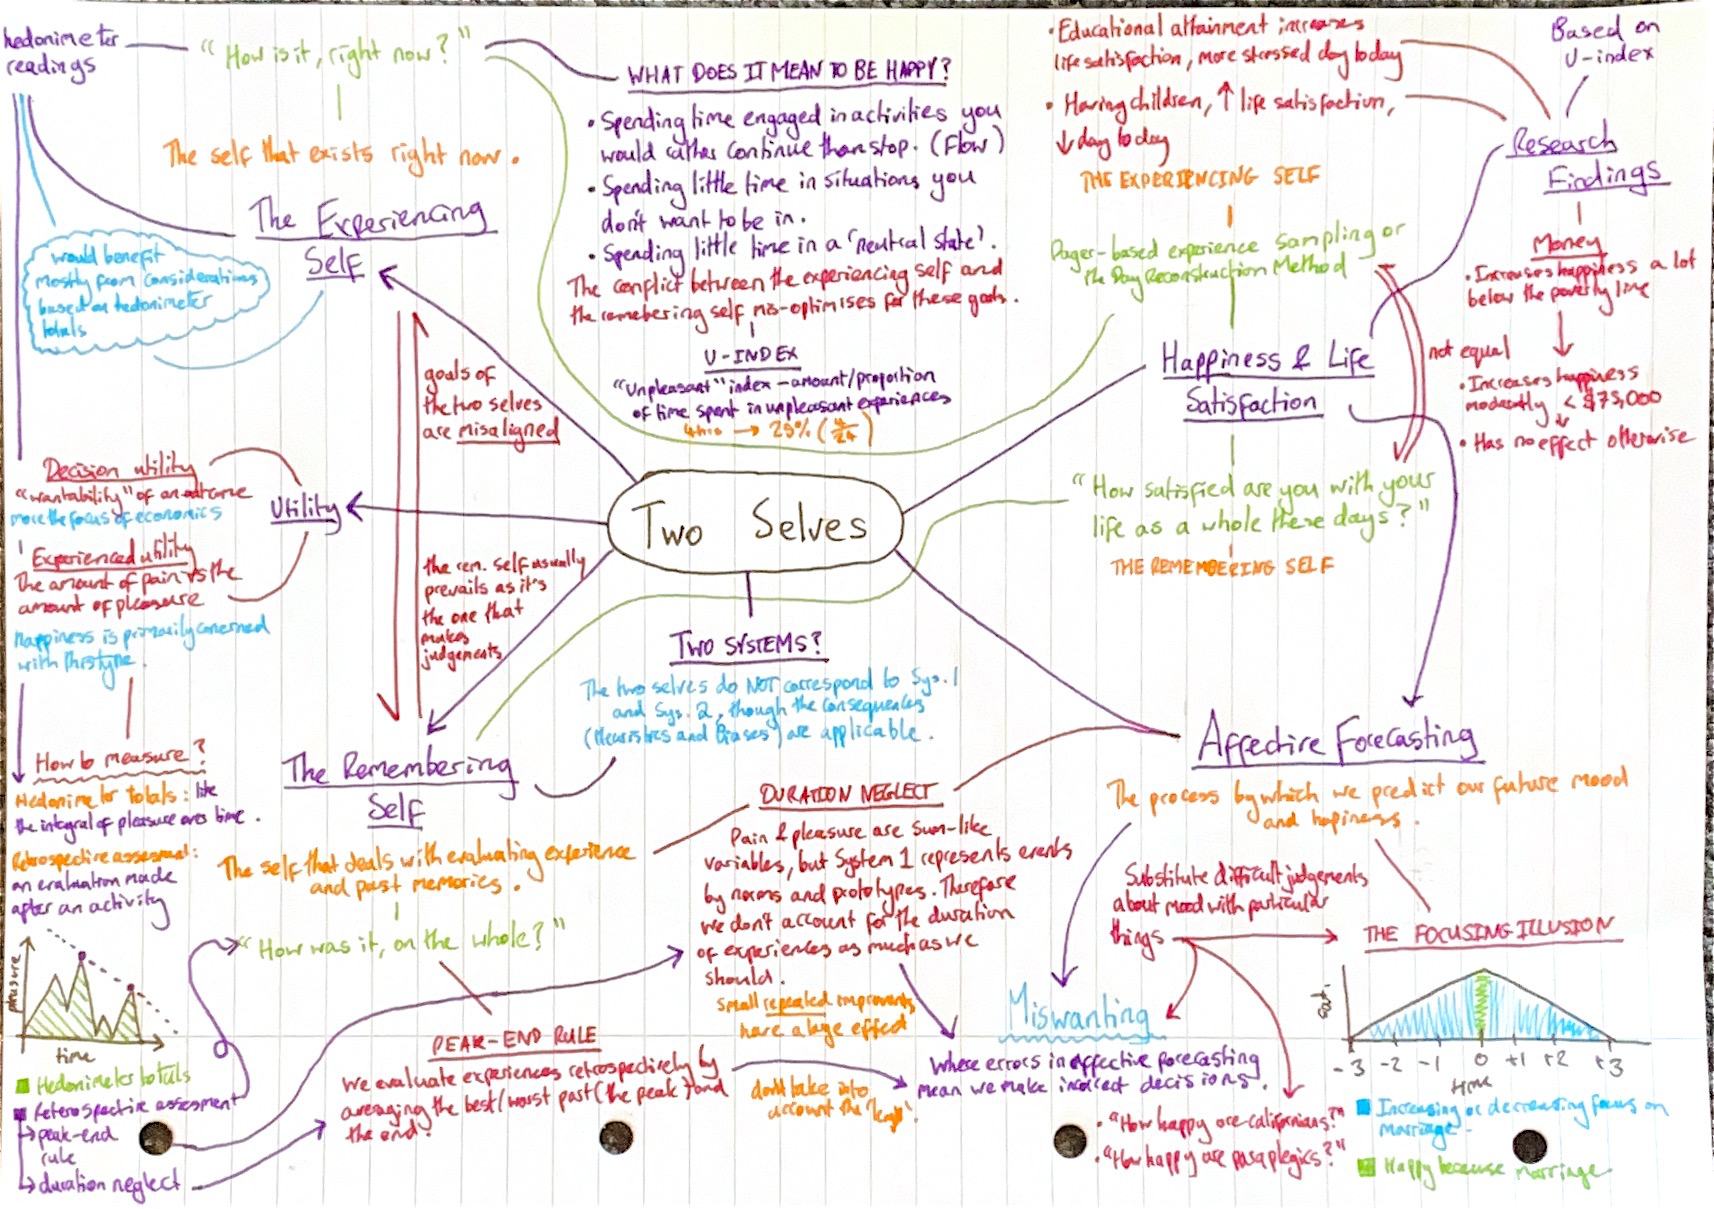 hedonimeter
readings
"How is it, right now?"
The self that exists right now.
The Experiencing
Self
would benefit
mostly from considerations
based on hedonimeter
totals
WHAT DOES IT MEAN TO BE HAPPY?
• Spending time engaged in activities you
would rather continue than stop. (Flow)
• Spending little time in situations you
don't want to be in.
• Spending little time in a 'neutral state'.
The conflict between the experiencing self and
the remebering self mis-optimises for these goals.
U-INDEX
"Unpleasant" index - amount/proportion
of time spent in unpleasant experiences
4hrs → 25% (4/24)
• Educational attainment increases
life satisfaction, more stressed day to day
• Having children, ↑ life satisfaction,
↓ day to day
THE EXPERIENCING SELF
Pager-based experience sampling or
the Day Reconstruction Method
Based on
U-index
Research
Findings
Money
• Increases happiness a lot
below the poverty line
not equal
• Increases happiness
moderately < $75,000
• Has no effect otherwise
Happiness & Life
Satisfaction
"How satisfied are you with your
life as a whole these days?"
THE REMEMBERING SELF
goals of
the two selves
are misaligned
the rem. self usually
prevails as it's
the one that
makes
judgements
Two Selves
Utility
Decision utility
"wantability" of an outcome
more the focus of economics
Experienced utility
The amount of pain vs the
amount of pleasure
Happiness is primarily concerned
with this type.
How to measure?
Hedonimeter totals: like
the integral of pleasure over time.
Retrospective assessment:
an evaluation made
after an activity
pleasure
time
Hedonimeter totals
Reterospective assesment
↳ peak-end
rule
↳ duration neglect
TWO SYSTEMS?
The two selves do NOT correspond to Sys. 1
and Sys. 2, though the consequences
(Heuristics and Biases) are applicable.
The Remembering
Self
The self that deals with evaluating experience
and past memories.
"How was it, on the whole?"
PEAK-END RULE
We evaluate experiences retrospectively by
averaging the best/worst past (the peak) and
the end.
DURATION NEGLECT
Pain & pleasure are sum-like
variables, but System 1 represents events
by norms and prototypes. Therefore
we don't account for the duration
of experiences as much as we
should.
Small repeated improvments
have a large effect
don't take into
account the
Affective Forecasting
The process by which we predict our future mood
and happiness.
Substitute difficult judgements
about mood with particular
things
THE FOCUSING ILLUSION
Miswanting
Where errors in affective forecasting
mean we make incorrect decisions.
• "How happy are californians?"
• "How happy are paraplegics?"
sat.
-3 -2 -1 0 +1 +2 +3
time
Increasing or decreasing focus on
marriage.
Happy because marriage.